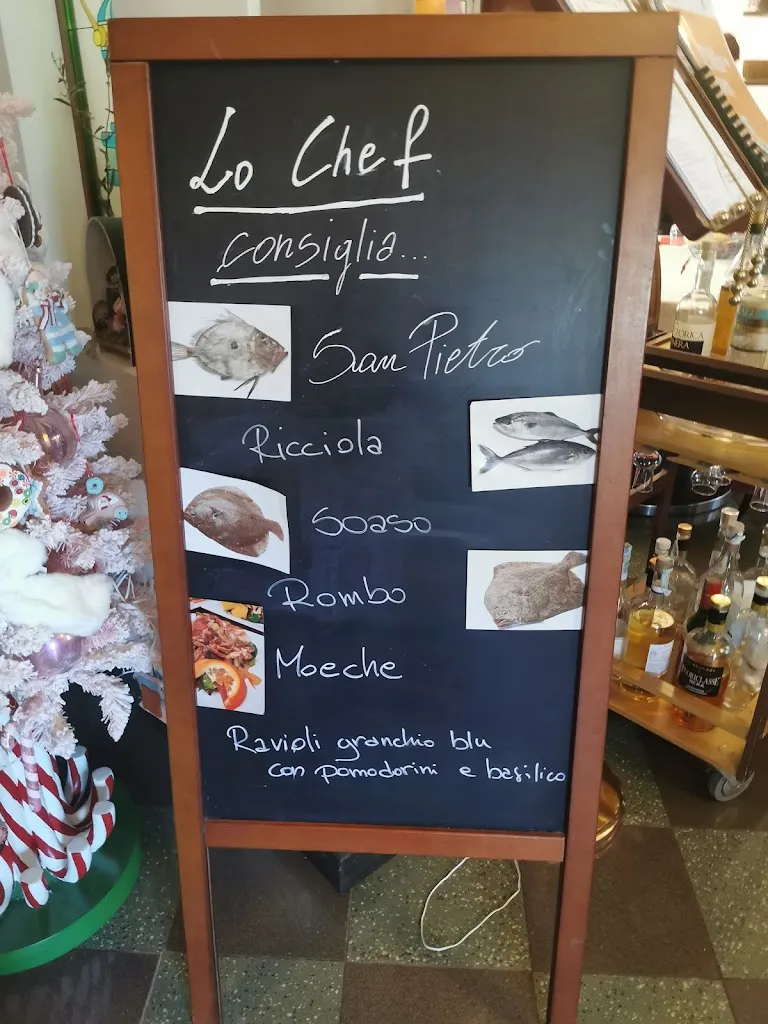 Lo Chef
consiglia...
San Pietro
Ricciola
Soaso
Rombo
Moeche
Ravioli granchio blu
con pomodorini e basilico
NERA